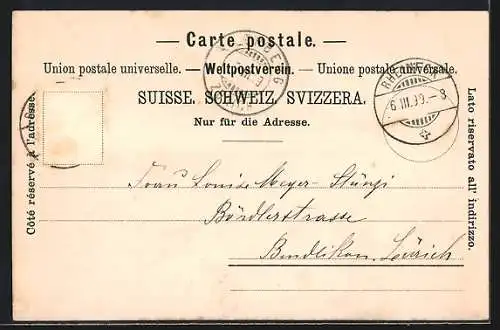 — Carte postale. —
Union postale universelle. — Weltpostverein. — Unione postale universale.
SUISSE. SCHWEIZ. SVIZZERA.
Nur für die Adresse.
Côté réservé à l'adresse.
Lato riservato all' indirizzo.
6.III.99.–8
Frau Louise Meyer-Stünzi
Bendlikon Zürich